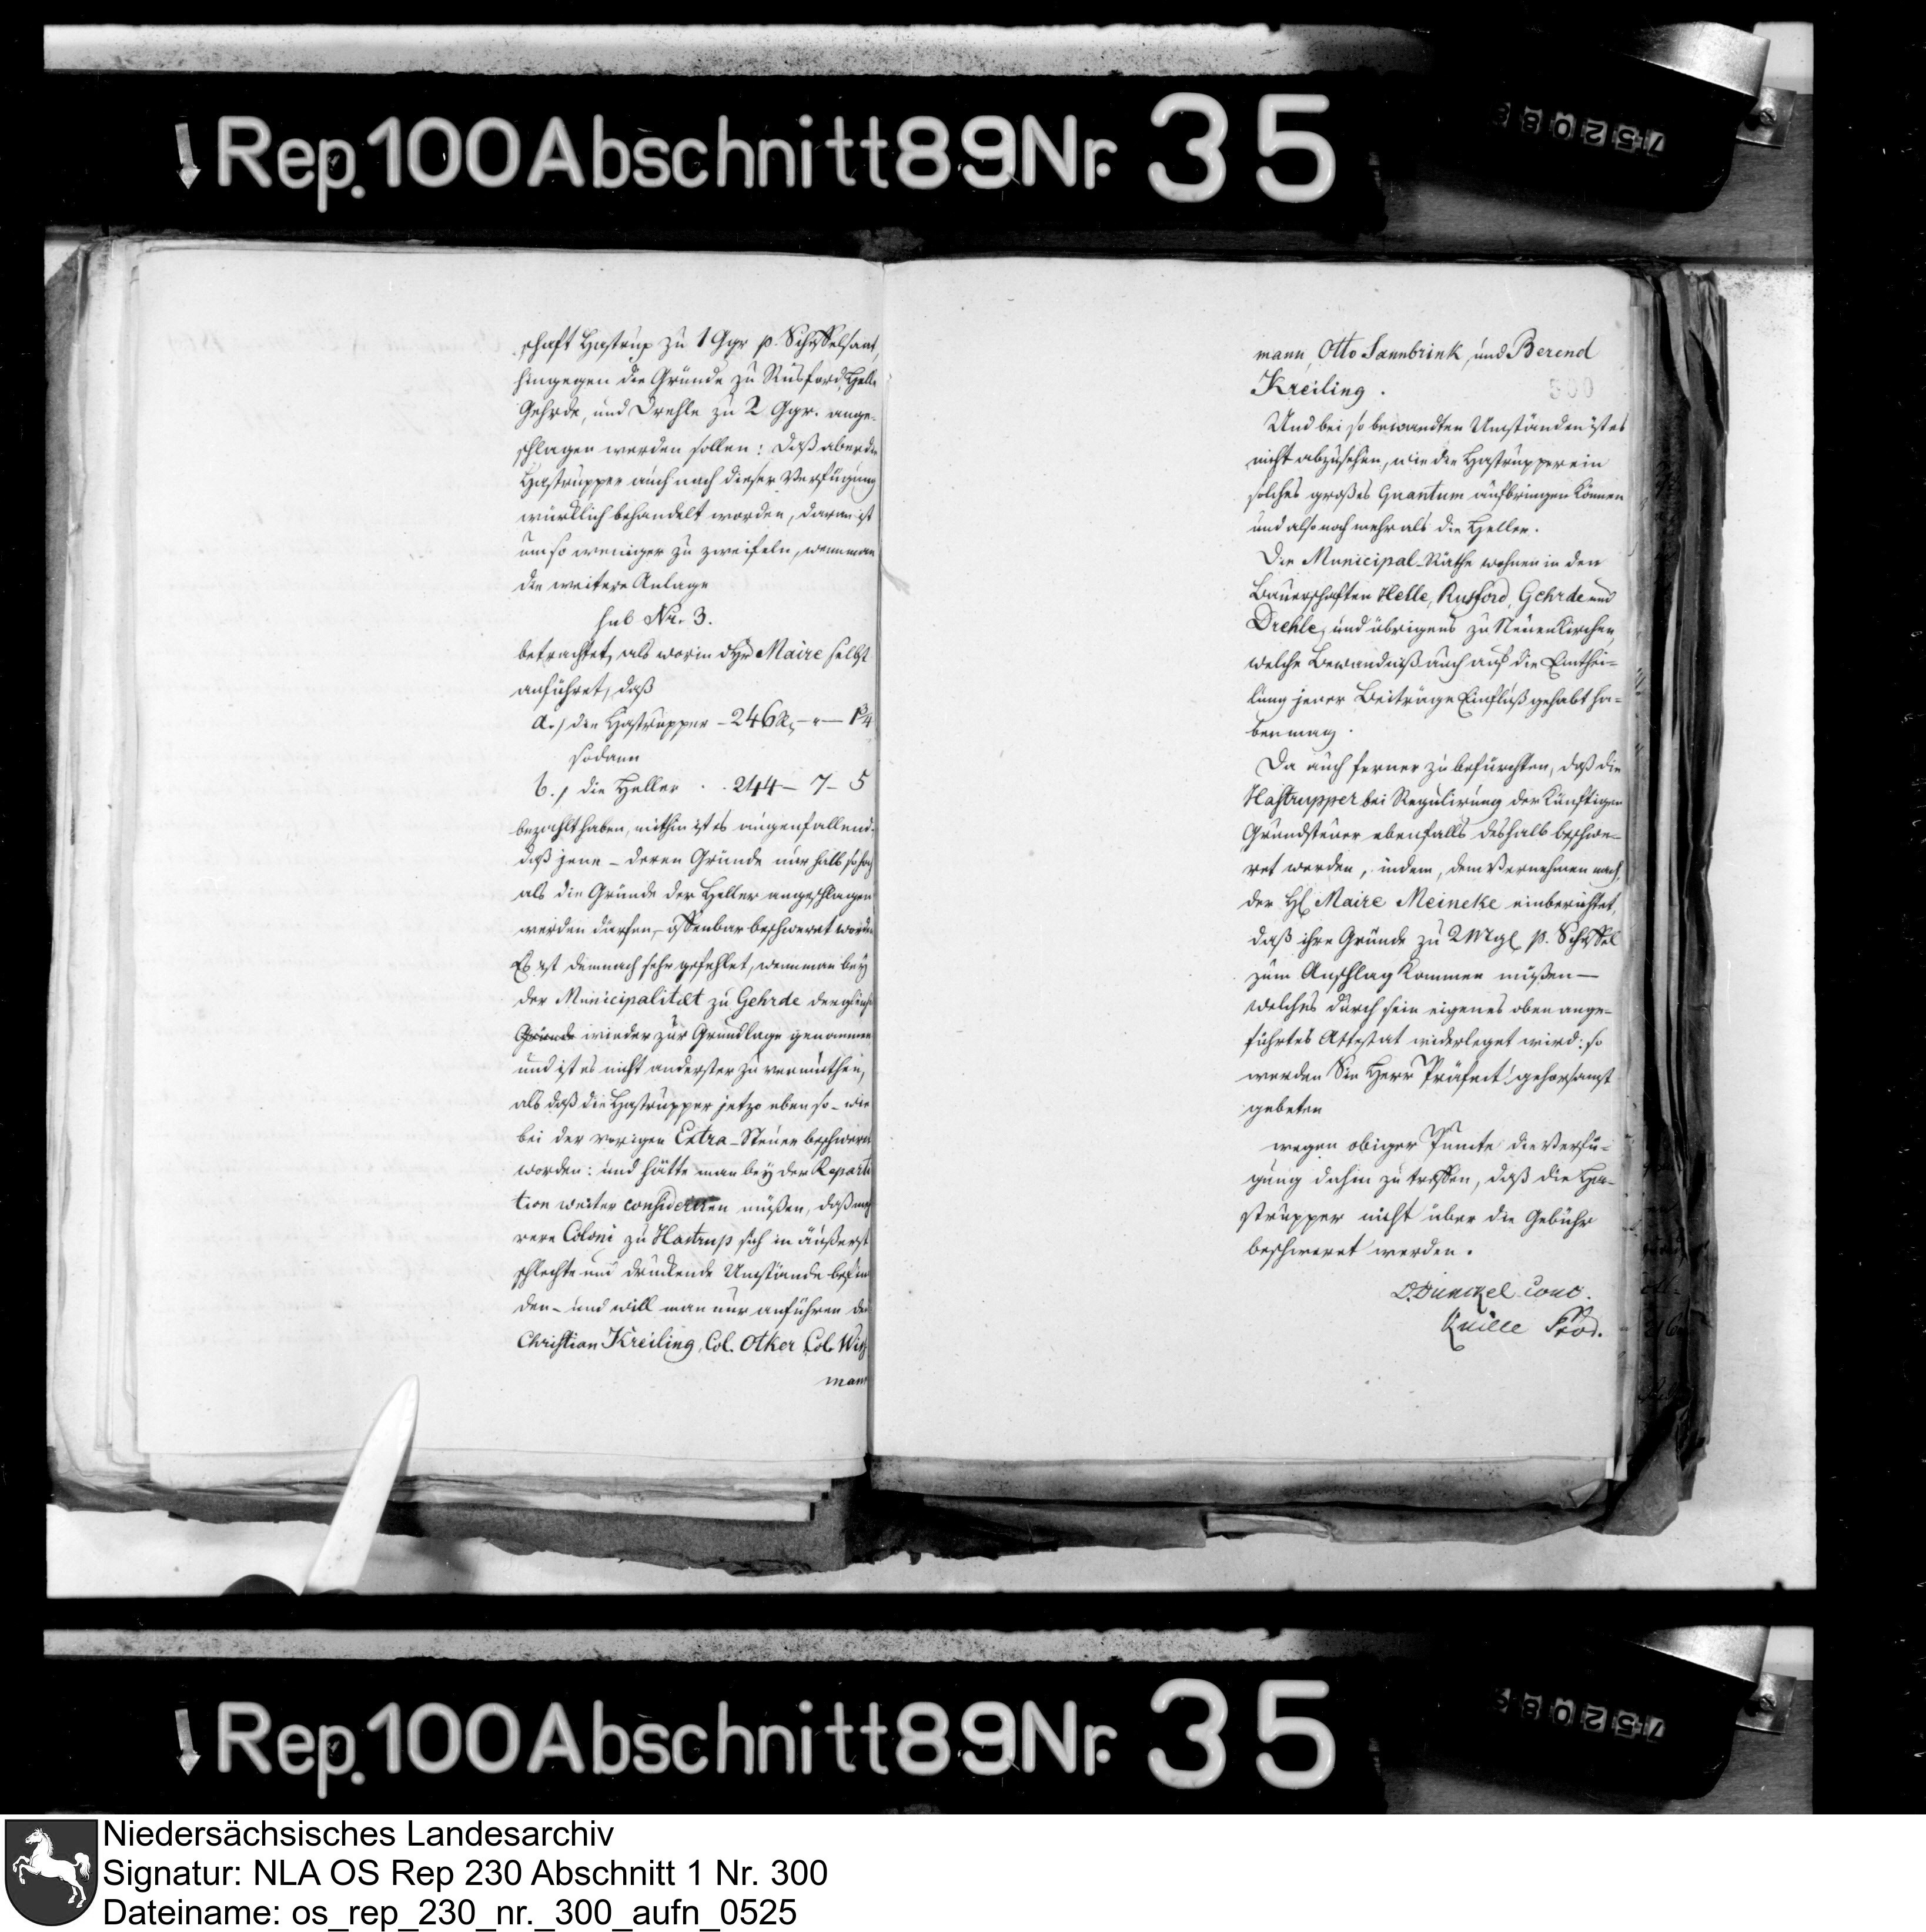 Rep. 100 Abschnitt 89 Nr. 35
752083
schaft Hastrup zu 1 Ggr p. Scheffelsaat,
hingegen die Gründe zu Rüsford, Helle
Gehrde, und Drehle zu 2 Ggr. ange-
schlagen werden sollen: Daß aber die
Hastrupper auch nach dieser Verfügung
würklich behandelt worden, daran ist
um so weniger zu zweifeln, wenn man
die weitere Anlage
sub Nr. 3.
betrachtet, als worin Maire selbst
anführet, daß
a.) die Hastrupper - 246 - " - 1¾
sodann
b.) die Heller . . 244 - 7 - 5
bezahlt haben, mithin ist es augenfallend.
daß jene - deren Gründe nur halb so hoch
als die Gründe der Heller angeschlagen
werden dürfen, - offenbar beschweret worden
Es ist demnach sehr gefehlet, wenn man bey
der Municipalitæt zu Gehrde
Gründe wieder zur Grundlage genommen
und ist es nicht anderster zu vermuthen,
als daß die Hastrupper jetzo eben so - wie
bei der vorigen Extra-Steuer beschweret
worden: und hätte man bey der Reparti
tion weiter consideriren müßen, daß meh
rere Coloni zu Hastrup sich in äußerst
schlechte und drückende Umstände befin
den - und will man nur anführen den
Christian Kreiling, Col. Otker, Col. Witz
mann
mann, Otto Sannbrink, und Berend
Kreiling.
300
Und bei so bewandten Umständen ist es
nicht abzusehen, wie die Hastrupper ein
solches großes Quantum aufbringen können
und also noch mehr als die Heller.
Die Municipal-Räthe wohnen in den
Bauerschaften Helle, Rusford, Gehrde und
Drehle, und übrigens zu Neuenkirchen,
welche Bewandniß auch auf die Einthei-
lung jener Beiträge Einfluß gehabt ha-
ben mag.
Da auch ferner zu befürchten, daß die
Hastrupper bei Regulirung der künftigen
Grundsteuer ebenfalls deshalb beschwe-
ret werden, indem, dem Vernehmen nach,
der H. Maire Meineke einberichtet,
daß ihre Gründe zu 2 Mgl p. Scheffel
zum Anschlag kommen müßen —
welches durch sein eigenes oben ange-
führtes Attestat widerleget wird: so
werden Sie Herr Präfect! gehorsamst
gebeten
wegen obiger Puncte die Verfü-
gung dahin zu treffen, daß die Ha-
strupper nicht über die Gebühr
beschweret werden.
D. Dunckel conc.
Quille Prod.
Rep. 100 Abschnitt 89 Nr. 35
752083
Niedersächsisches Landesarchiv
Signatur: NLA OS Rep 230 Abschnitt 1 Nr. 300
Dateiname: os_rep_230_nr._300_aufn_0525